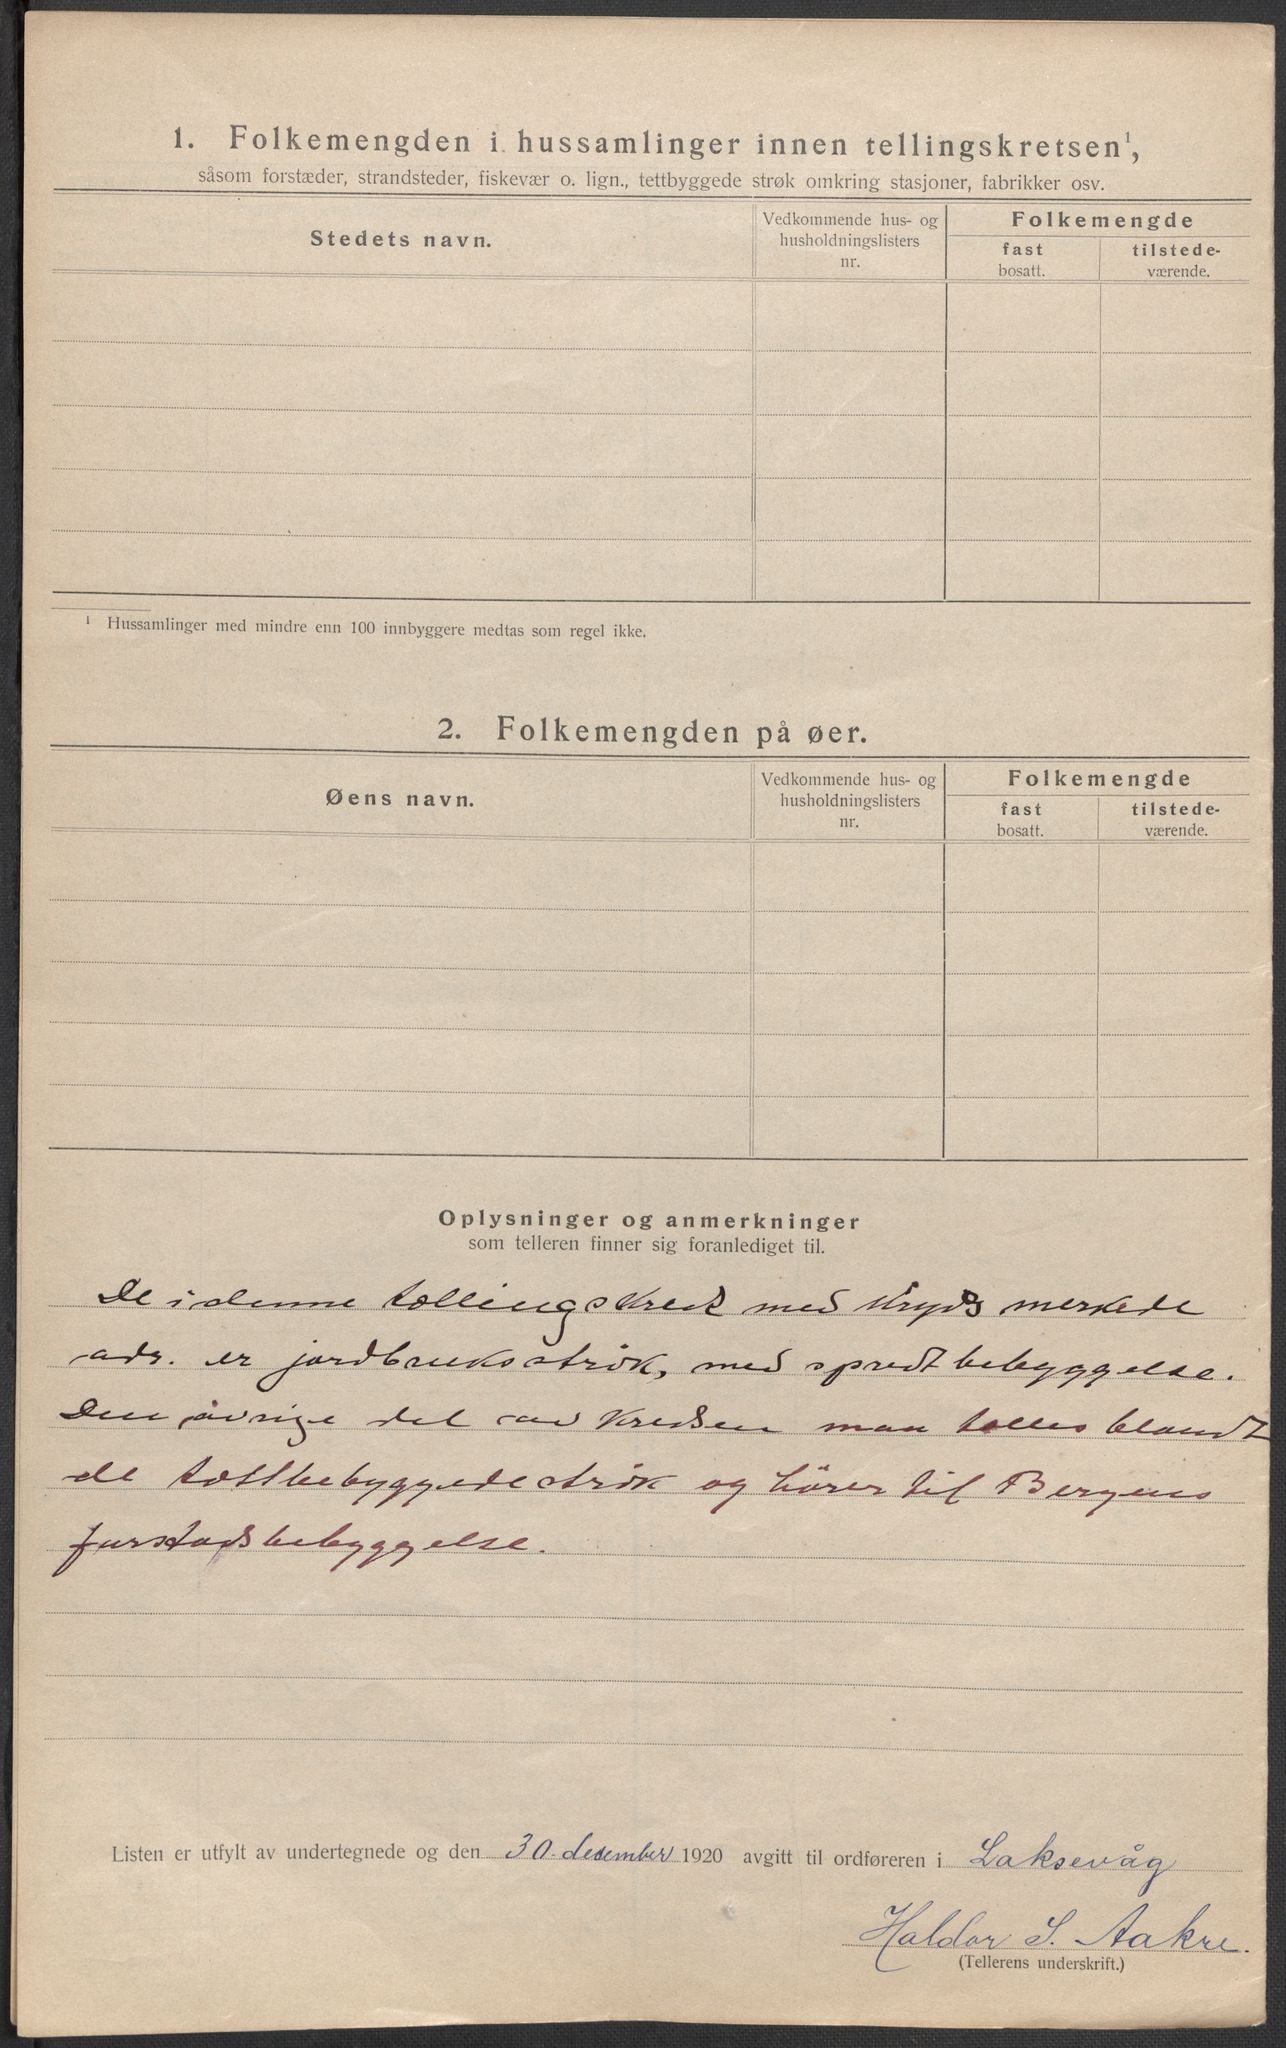 1. Folkemengden i hussamlinger innen tellingskretsen¹,
såsom forstæder, strandsteder, fiskevær o. lign., tettbyggede strøk omkring stasjoner, fabrikker osv.
Stedets navn.
Vedkommende hus- og
husholdningslisters
nr.
Folkemengde
fast
bosatt.
tilstede-
værende.
¹ Hussamlinger med mindre enn 100 innbyggere medtas som regel ikke.
2. Folkemengden på øer.
Øens navn.
Vedkommende hus- og
husholdningslisters
nr.
Folkemengde
fast
bosatt.
tilstede-
værende.
Oplysninger og anmerkninger
som telleren finner sig foranlediget til.
De i denne tællingskreds med kryds merkede
adr. er jordbruksströk, med spredt bebyggelse.
Den øvrige del av kredsen maa tælles blandt
de tættbebyggede strök og hörer til Bergens
forstadsbebyggelse.
Listen er utfylt av undertegnede og den 30. desember 1920 avgitt til ordføreren i Laksevåg
Haldor S. Aakre.
(Tellerens underskrift.)